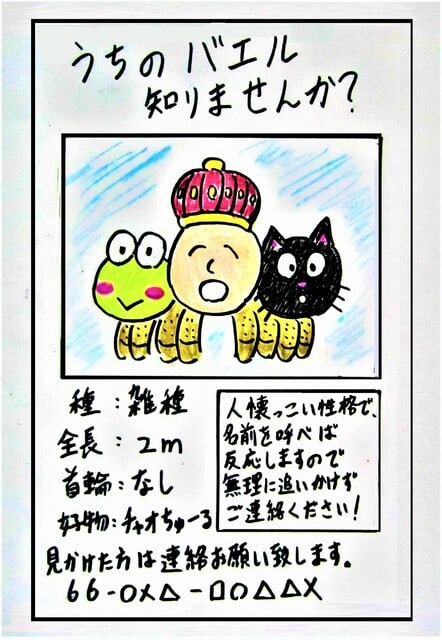 うちのバエル
知りませんか?
種:雑種
全長:2m
首輪:なし
好物:チャオちゅーる
人懐っこい性格で、
名前を呼べば
反応しますので
無理に追いかけず
ご連絡ください!
見かけた方は連絡お願い致します。
66-○×△-□○△△×